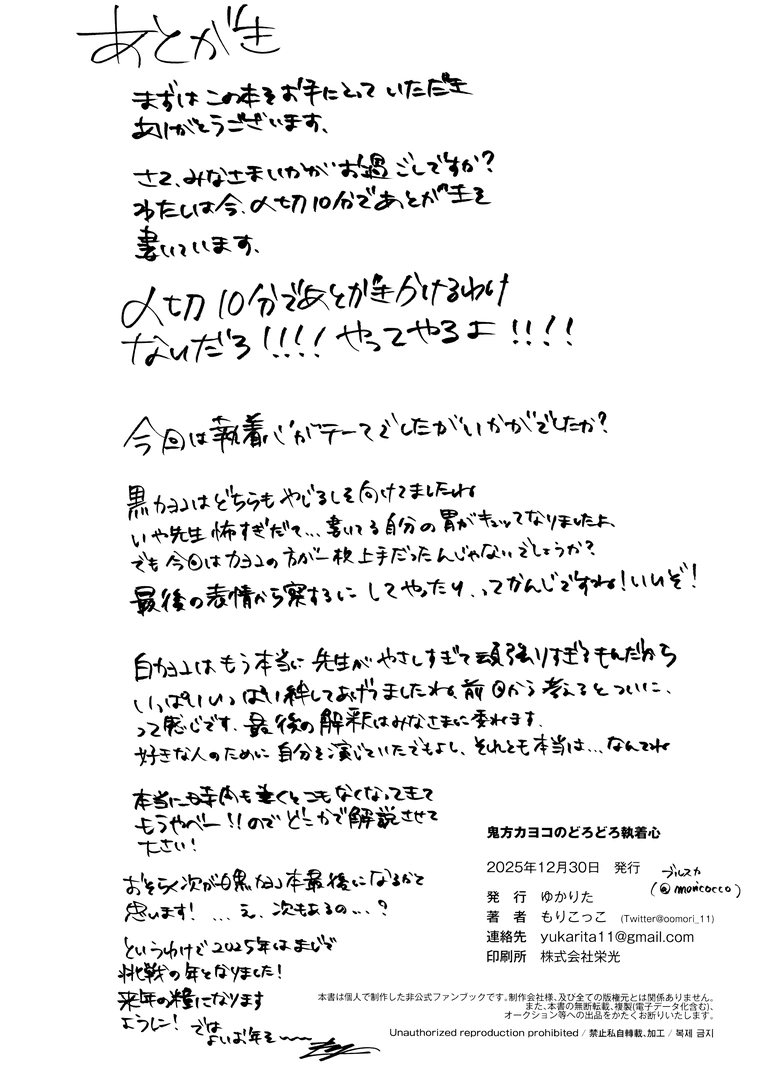 あとがき
まずはこの本をお手にとっていただき
ありがとうございます、
さて、みなさまいかがお過ごしですか?
わたしは今、〆切10分であとがきを
書いています、
〆切10分であとがきかけるわけ
ないだろ!!!! やってやるよ!!!!
今回は執着心がテーマでしたがいかがでしたか?
黒カヨコはどちらもやじるしを向けてましたね
いや先生怖すぎだて…書いてる自分の胃がキュッてなりましたよ
でも今回はカヨコの方が一枚上手だったんじゃないでしょうか?
最後の表情から察するに してやったり、ってかんじですね!いいぞ!
白カヨコはもう本当に先生がやさしすぎて頑張りすぎるもんだから
いっぱいいっぱい絆してあげてましたね、前回から考えるとついに、
って感じです、最後の解釈はみなさまに委ねます、
好きな人のために自分を演じていたでもよし、それとも本当は…なんてね
本当に時間も書くとこもなくなってきて
もうやべー!!のでどこかで解説させて
下さい!
おそらく次が白黒カヨコ本最後になるかと
思います! …え、次もあるの…?
というわけで2025年はまじで
挑戦の年となりました!
来年の糧になります
ように! では
よいお年を〜〜
鬼方カヨコのどろどろ執着心
2025年12月30日 発行
ブルスカ
(@moricocco)
発 行 ゆかりた
著 者 もりこっこ (Twitter@oomori_11)
連絡先 yukarita11@gmail.com
印刷所 株式会社栄光
本書は個人で制作した非公式ファンブックです。制作会社様、及び全ての版権元とは関係ありません。
また、本書の無断転載、複製(電子データ化含む)、
オークション等への出品をかたくお断りいたします。
Unauthorized reproduction prohibited / 禁止私自轉載、加工 / 복제 금지